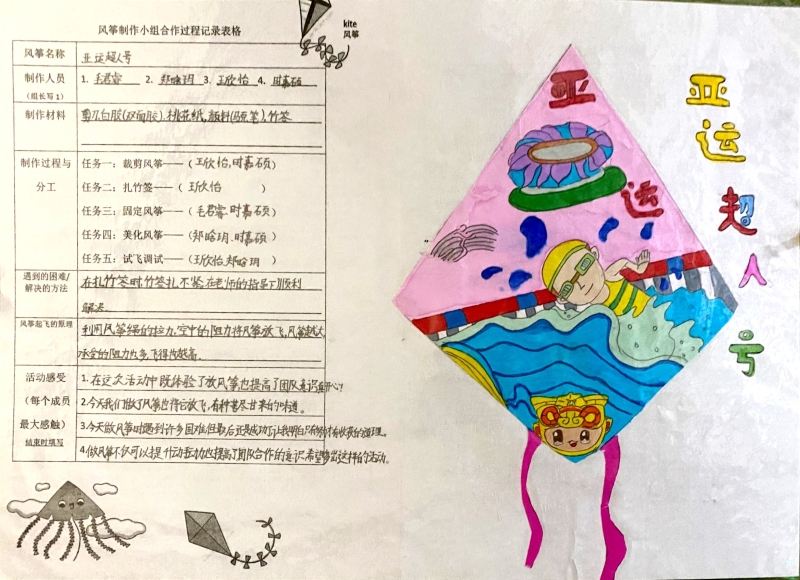 风筝制作小组合作过程记录表格
kite
风筝
风筝名称 亚运超人号
制作人员 1. 毛君睿 2. 郑晗玥 3. 王欣怡 4. 时嘉硕
(组长写1)
制作材料 剪刀,白胶(双面胶).桃花纸,颜料(马克笔),竹签
制作过程与分工
任务一:裁剪风筝——(王欣怡,时嘉硕)
任务二:扎竹签——(王欣怡)
任务三:固定风筝——(毛君睿.时嘉硕)
任务四:美化风筝——(郑晗玥.时嘉硕)
任务五:试飞调试——(王欣怡,郑晗玥)
遇到的困难/解决的方法
在扎竹签时竹签扎不紧.在老师的指导下顺利
解决.
风筝起飞的原理
利用风筝绳的拉力,空中的阻力将风筝放飞,风筝越大
承受的阻力也多飞得也越高.
活动感受
(每个成员
最大感触)
结束时填写
1. 在这次活动中既体验了放风筝也提高了团队意识真开心!
2.今天我们做了风筝也将它放飞,有种苦尽甘来的味道.
3.今天做风筝时遇到许多困难但最后还是成功了让我明白只有努力才有收获的道理.
4.做风筝不仅可以提升动手力也提高了团队合作的意识.希望多出这样的活动.
亚
运
亚
运
超
人
号